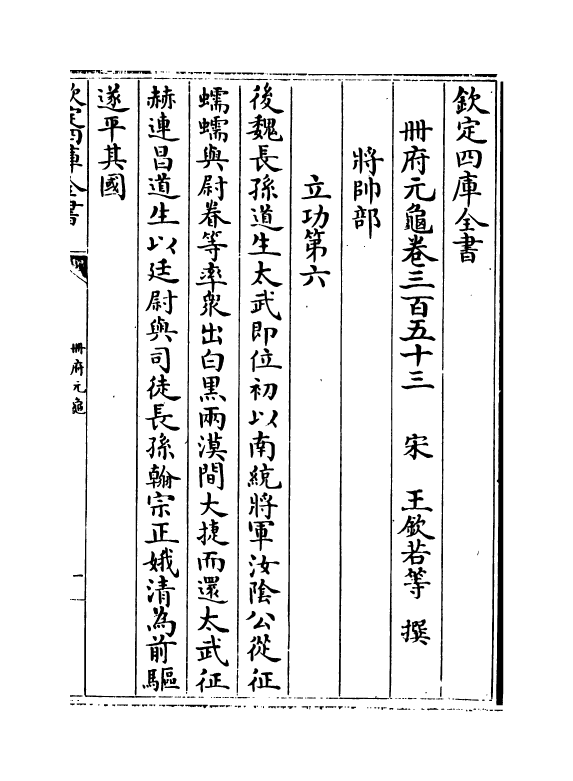 欽定四庫全書
冊府元龜卷三百五十三 宋 王欽若等 撰
將帥部
立功第六
後魏長孫道生太武即位初以南統將軍汝陰公從征
蠕蠕與尉眷等率衆出白黑兩漠間大捷而還太武征
赫連昌道生以廷尉與司徒長孫翰宗正娥清為前驅
遂平其國
欽定四庫全書
冊府元龜
一